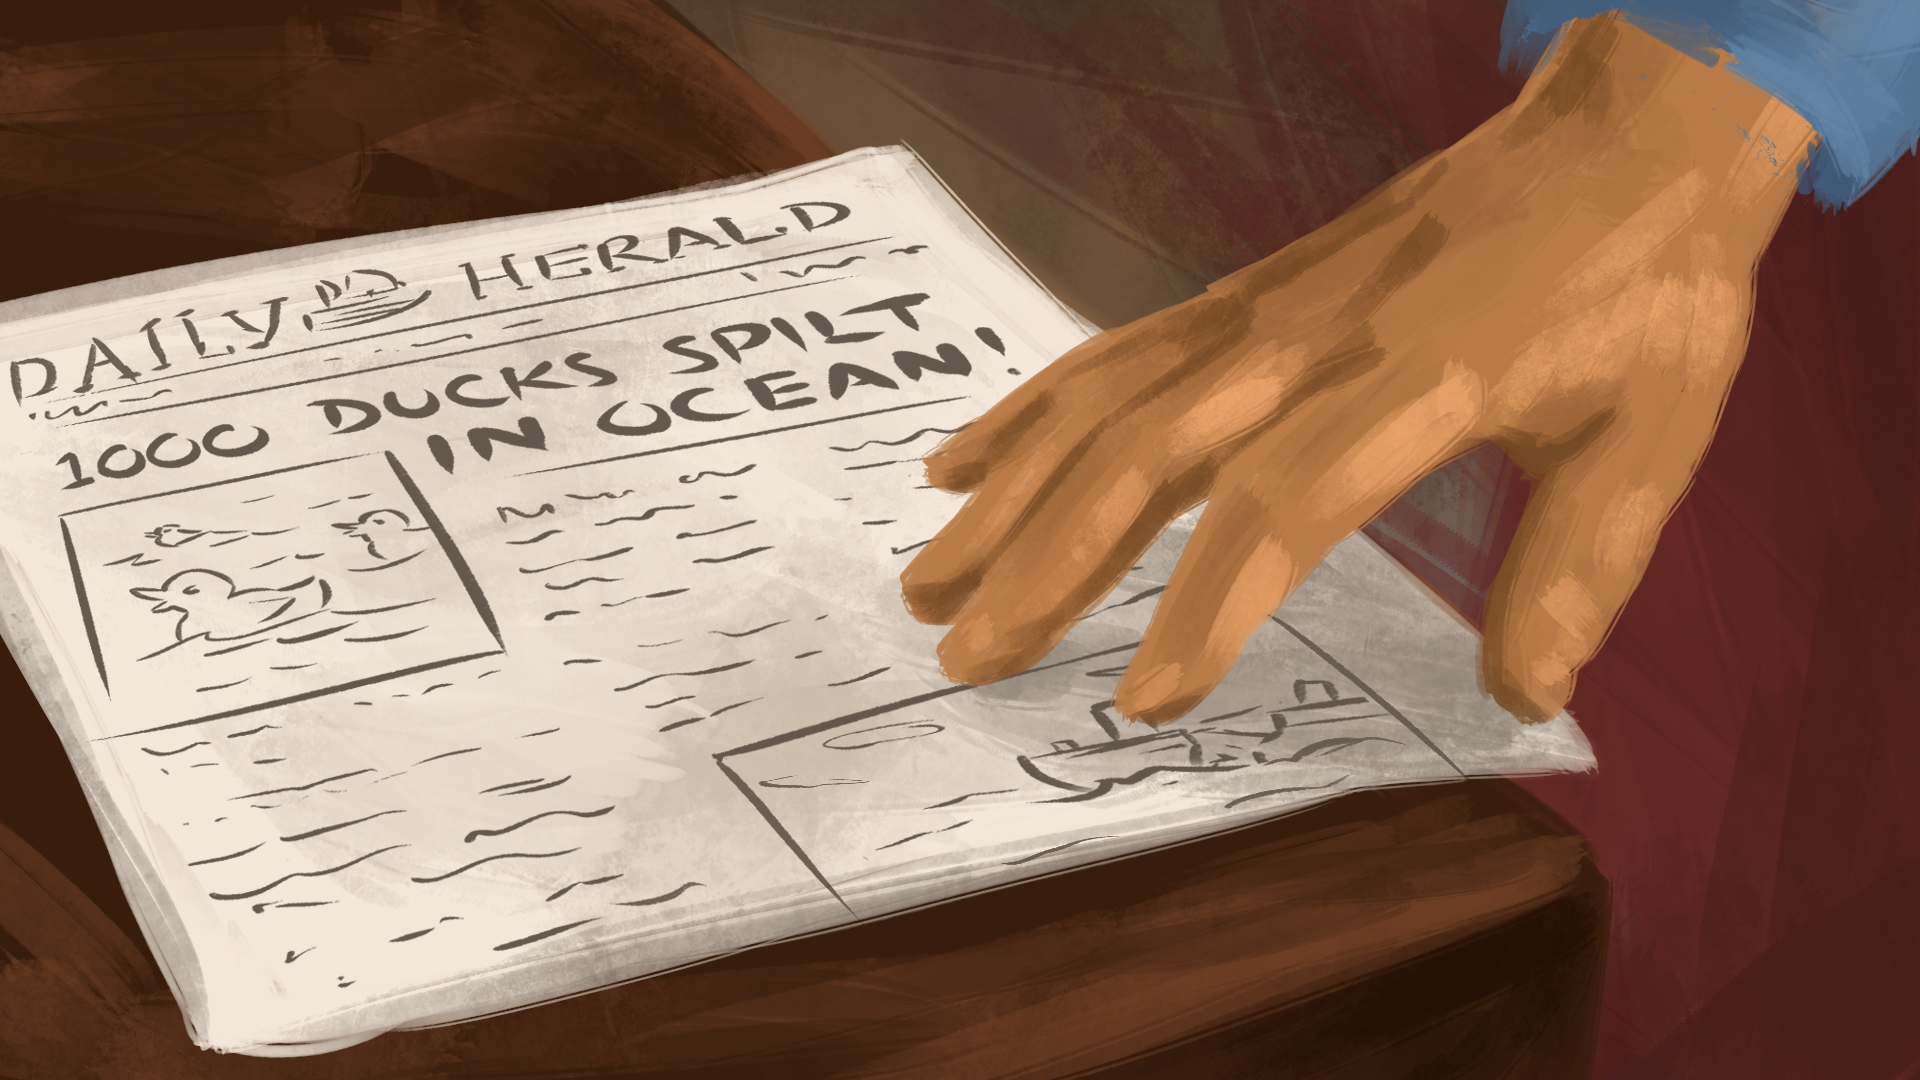 DAILY HERALD
1000 DUCKS SPILT
IN OCEAN!